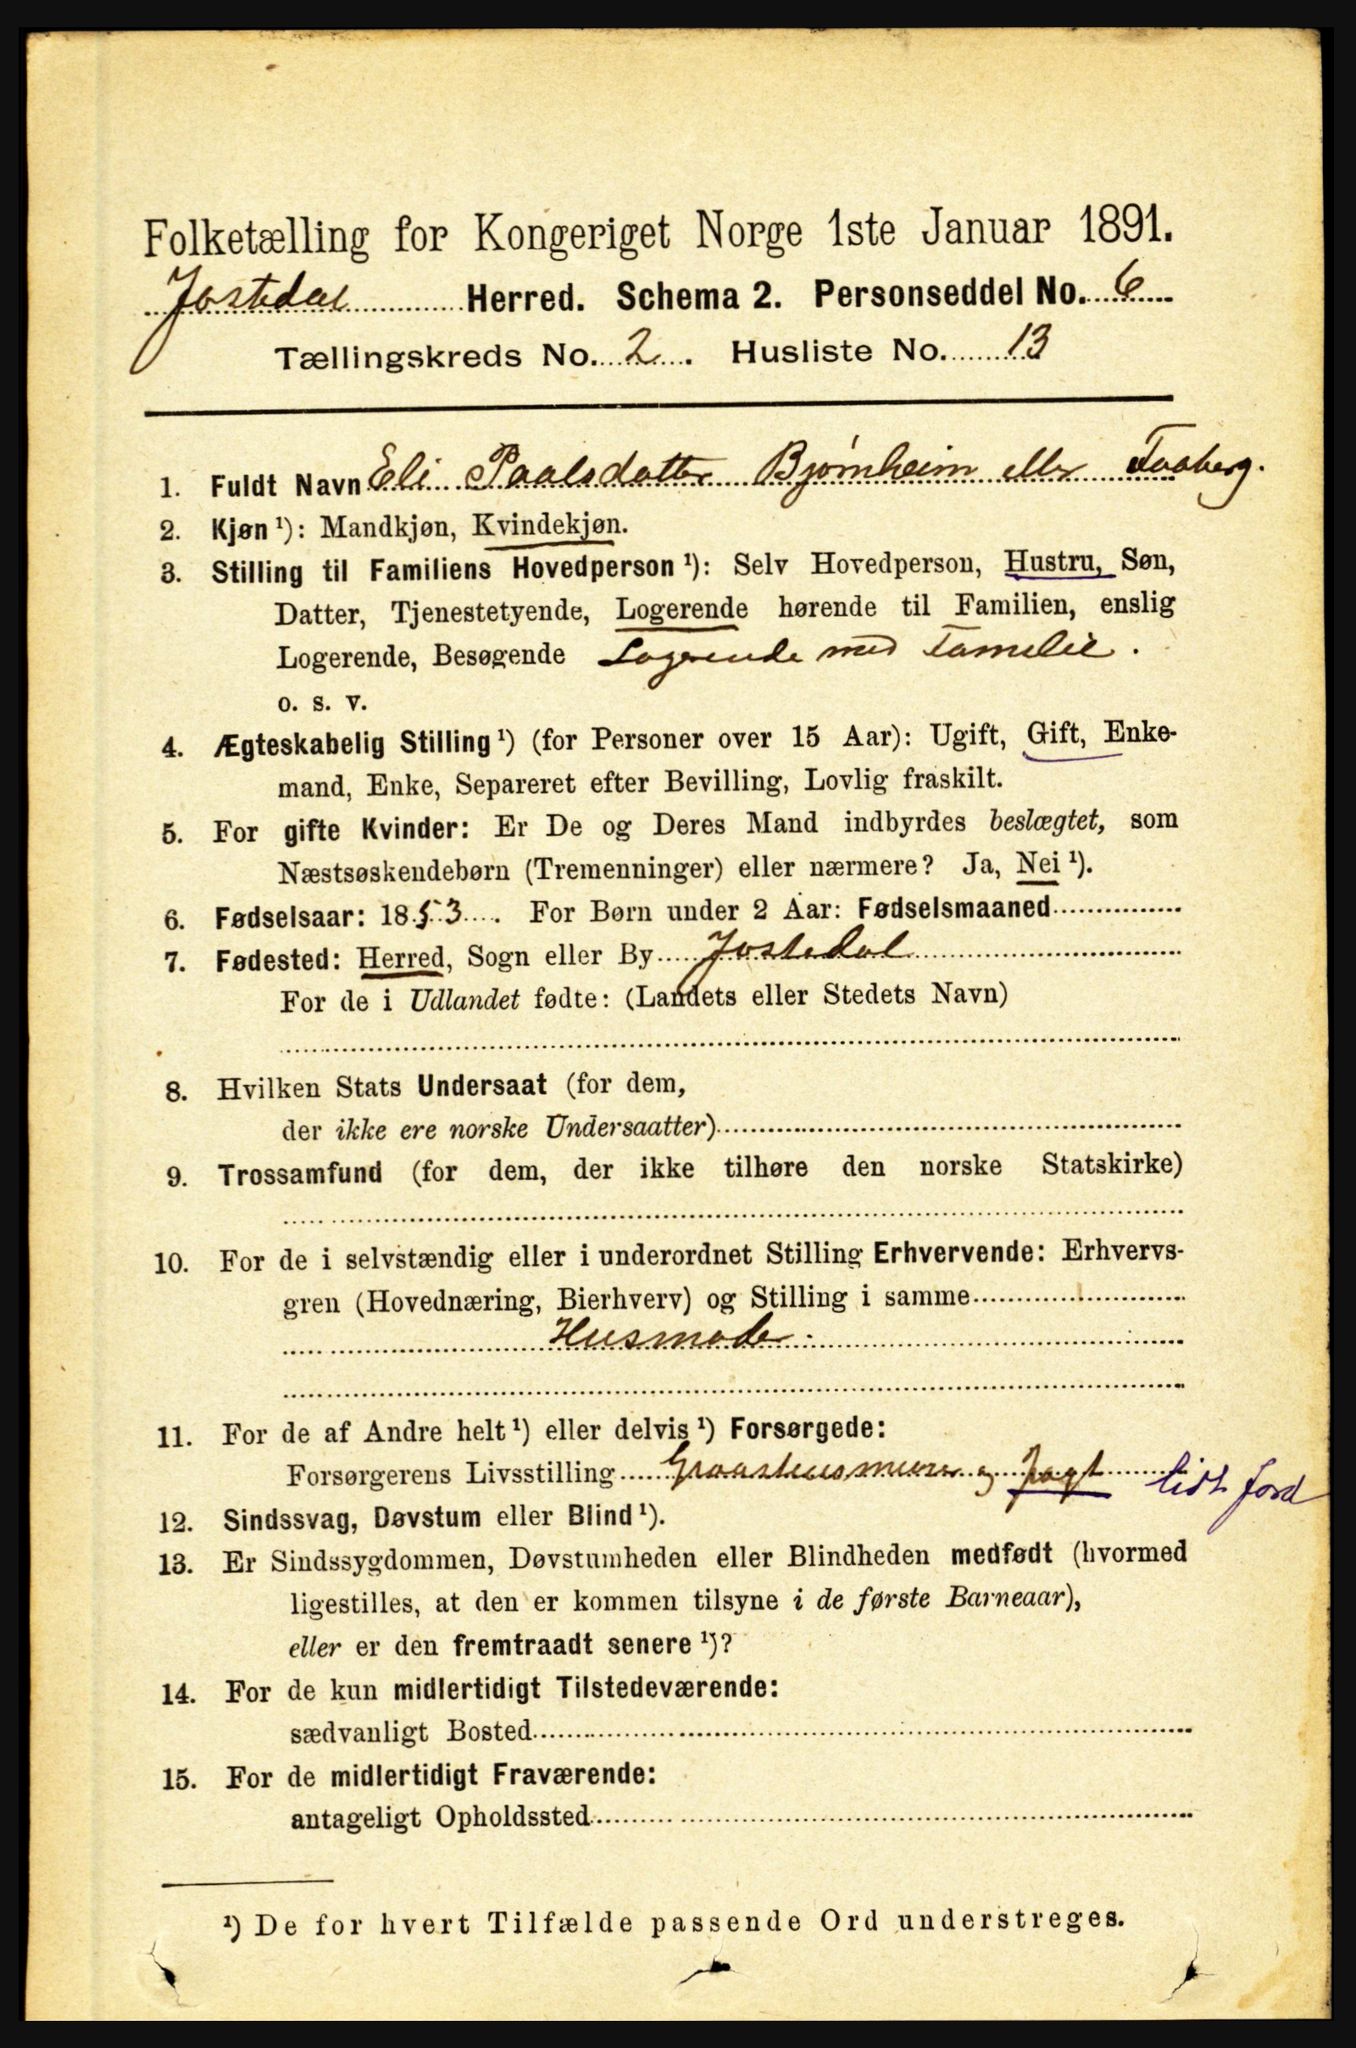 Folketælling for Kongeriget Norge 1ste Januar 1891.
Jostedal Herred. Schema 2. Personseddel No. 6
Tællingskreds No. 2. Husliste No. 13
1. Fuldt Navn Eli Paalsdatter Bjørnheim eller Faaberg.
2. Kjøn ¹): Mandkjøn, Kvindekjøn.
3. Stilling til Familiens Hovedperson ¹): Selv Hovedperson, Hustru, Søn,
Datter, Tjenestetyende, Logerende hørende til Familien, enslig
Logerende, Besøgende Logerende med Familie.
o. s. v.
4. Ægteskabelig Stilling ¹) (for Personer over 15 Aar): Ugift, Gift, Enke-
mand, Enke, Separeret efter Bevilling, Lovlig fraskilt.
5. For gifte Kvinder: Er De og Deres Mand indbyrdes beslægtet, som
Næstsøskendebørn (Tremenninger) eller nærmere? Ja, Nei ¹).
6. Fødselsaar: 1853. For Børn under 2 Aar: Fødselsmaaned
7. Fødested: Herred, Sogn eller By Jostedal
For de i Udlandet fødte: (Landets eller Stedets Navn)
8. Hvilken Stats Undersaat (for dem,
der ikke ere norske Undersaatter)
9. Trossamfund (for dem, der ikke tilhøre den norske Statskirke)
10. For de i selvstændig eller i underordnet Stilling Erhvervende: Erhvervs-
gren (Hovednæring, Bierhverv) og Stilling i samme
Husmoder.
11. For de af Andre helt ¹) eller delvis ¹) Forsørgede:
Forsørgerens Livsstilling Graasteinsmurer og Jagt lidt Jord
12. Sindssvag, Døvstum eller Blind ¹).
13. Er Sindssygdommen, Døvstumheden eller Blindheden medfødt (hvormed
ligestilles, at den er kommen tilsyne i de første Barneaar),
eller er den fremtraadt senere ¹)?
14. For de kun midlertidigt Tilstedeværende:
sædvanligt Bosted
15. For de midlertidigt Fraværende:
antageligt Opholdssted
¹) De for hvert Tilfælde passende Ord understreges.